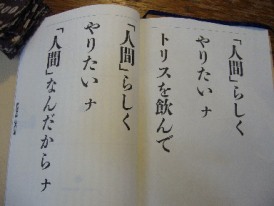 「人間」らしく
やりたいナ
トリスを飲んで
「人間」らしく
やりたいナ
「人間」なんだからナ